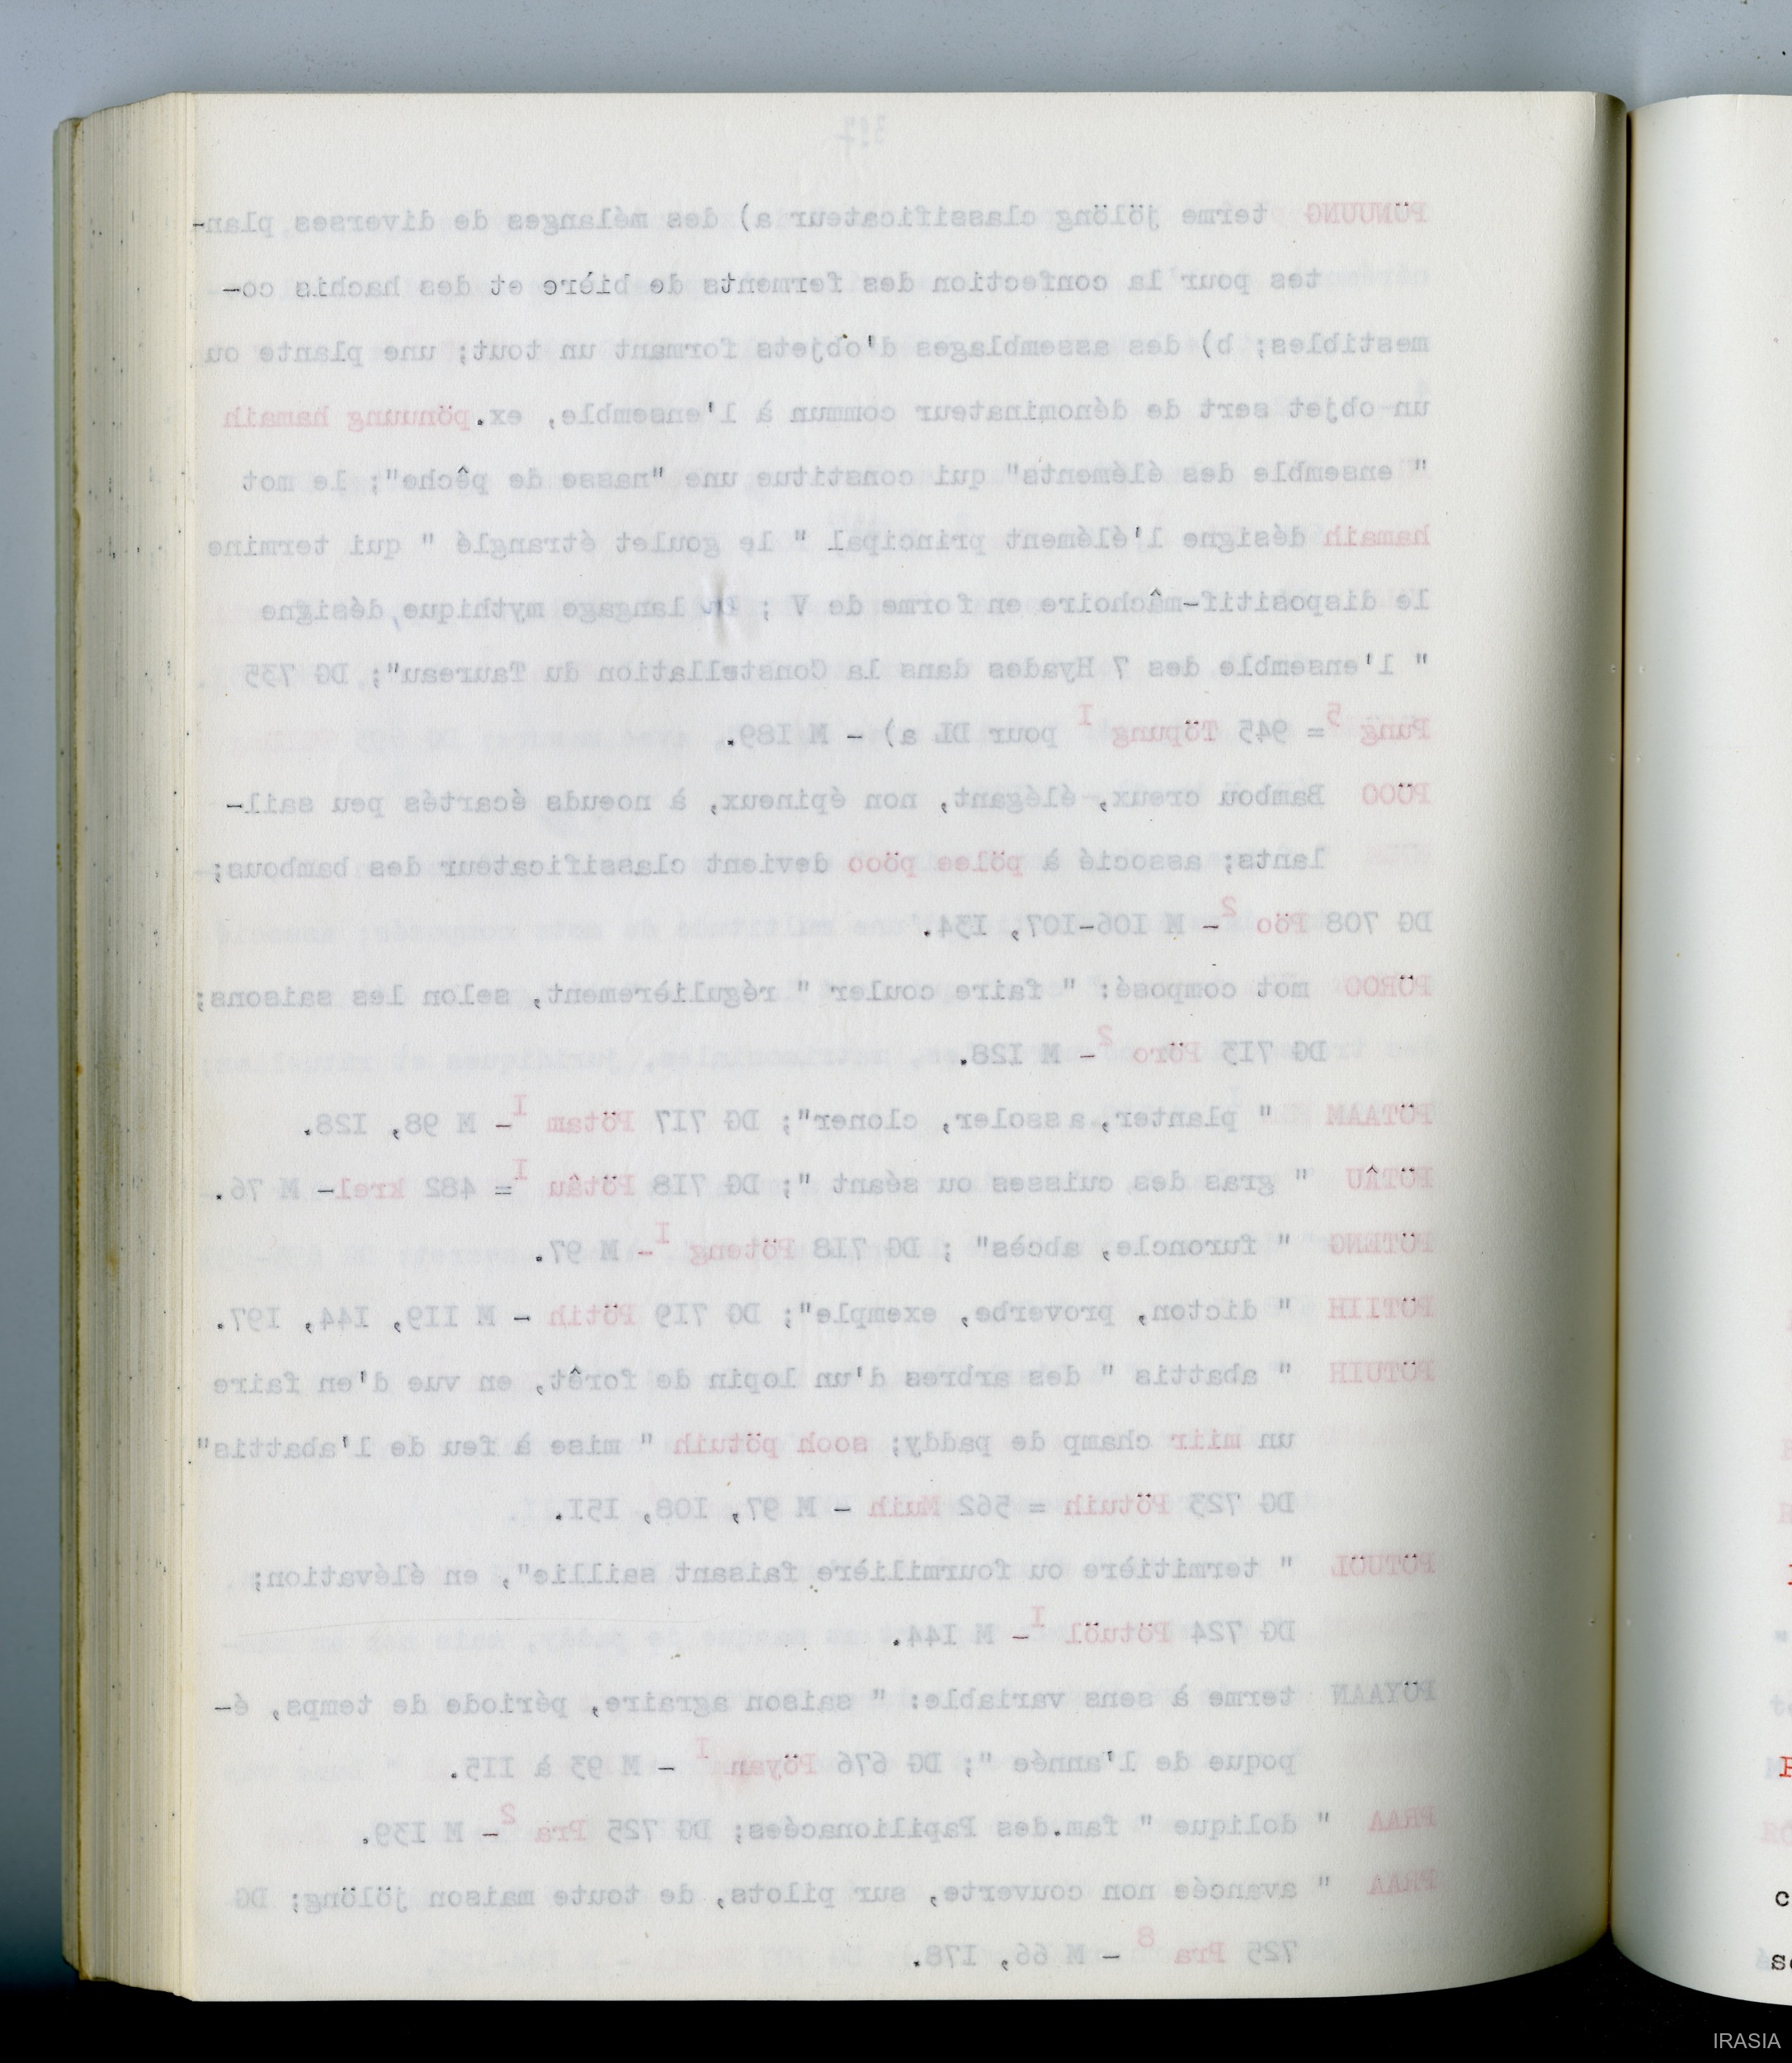 397
PÖNUUNG terme jölöng classificateur a) des mélanges de diverses plan-
tes pour la confection des ferments de bière et des hachis co-
mestibles; b) des assemblages d'objets formant un tout; une plante ou
un objet sert de dénominateur commun à l'ensemble, ex.pönuung hamaih
" ensemble des éléments" qui constitue une "nasse de pêche"; le mot
hamaih désigne l'élément principal " le goulet étranglé " qui termine
le dispositif-mâchoire en forme de V ; langage mythique, désigne
" l'ensemble des 7 Hyades dans la Constellation du Taureau"; DG 735
Pung 5= 945 Töpung I pour DL a) - M I89.
PÖOO Bambou creux, élégant, non épineux, à noeuds écartés peu sail-
lants; associé à pölee pöoo devient classificateur des bambous;
DG 708 Pöo 2- M I06-I07, I34.
PÖROO mot composé: " faire couler " régulièrement, selon les saisons;
DG 7I3 Pöro 2- M I28.
PÖTAAM " planter, assoler, cloner"; DG 7I7 Pötam I- M 98, I28.
PÖTÂU " gras des cuisses ou séant "; DG 7I8 Pötâu I= 482 krel- M 76.
PÖTENG " furoncle, abcès" ; DG 7I8 Pöteng I- M 97.
PÖTIIH " dicton, proverbe, exemple"; DG 7I9 Pötih - M II9, I44, I97.
PÖTUIH " abattis " des arbres d'un lopin de forêt, en vue d'en faire
un miir champ de paddy; sooh pötuih " mise à feu de l'abattis"
DG 723 Pötuih = 562 Muih - M 97, I08, I5I.
PÖTUÖL " termitière ou fourmilière faisant saillie", en élévation;
DG 724 Pötuöl I- M I44.
PÖYAAN terme à sens variable: " saison agraire, période de temps, é-
poque de l'année "; DG 676 Pöyan I - M 93 à II5.
PRAA " dolique " fam.des Papilionacées; DG 725 Pra 2- M I39.
PRAA " avancée non couverte, sur pilots, de toute maison jölöng; DG
725 Pra 8 - M 66, I78.
IRASIA